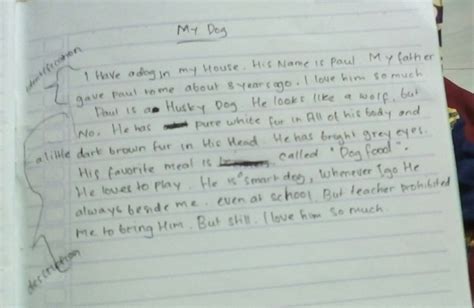 My Dog
identification
I Have a dog in my House. His Name is Paul My father
gave Paul to me about 3 years ago. I love him so much
Paul is a Husky Dog He looks like a wolf, but
No. He has pure white fur in All of his body and
a little dark brown fur in His Head. He has bright grey eyes.
His favorite meal is called "Dog food".
He loves to play. He is smart dog, Whenever I go He
always beside me. even at school. But teacher prohibited
Me to bring Him. But still. I love him so much.
description